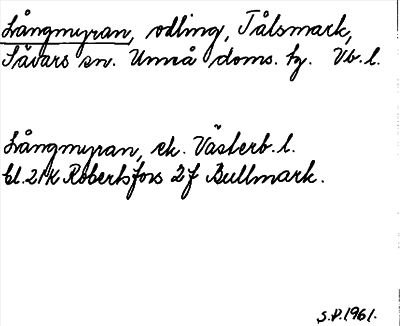 Långmyran, odling, Tålsmark,
Sävars sn. Umeå doms. tg. Vb. l.
Långmyran, ek. Västerb. l.
bl. 21K Robertsfors 2f Bullmark.
S.P. 1961.